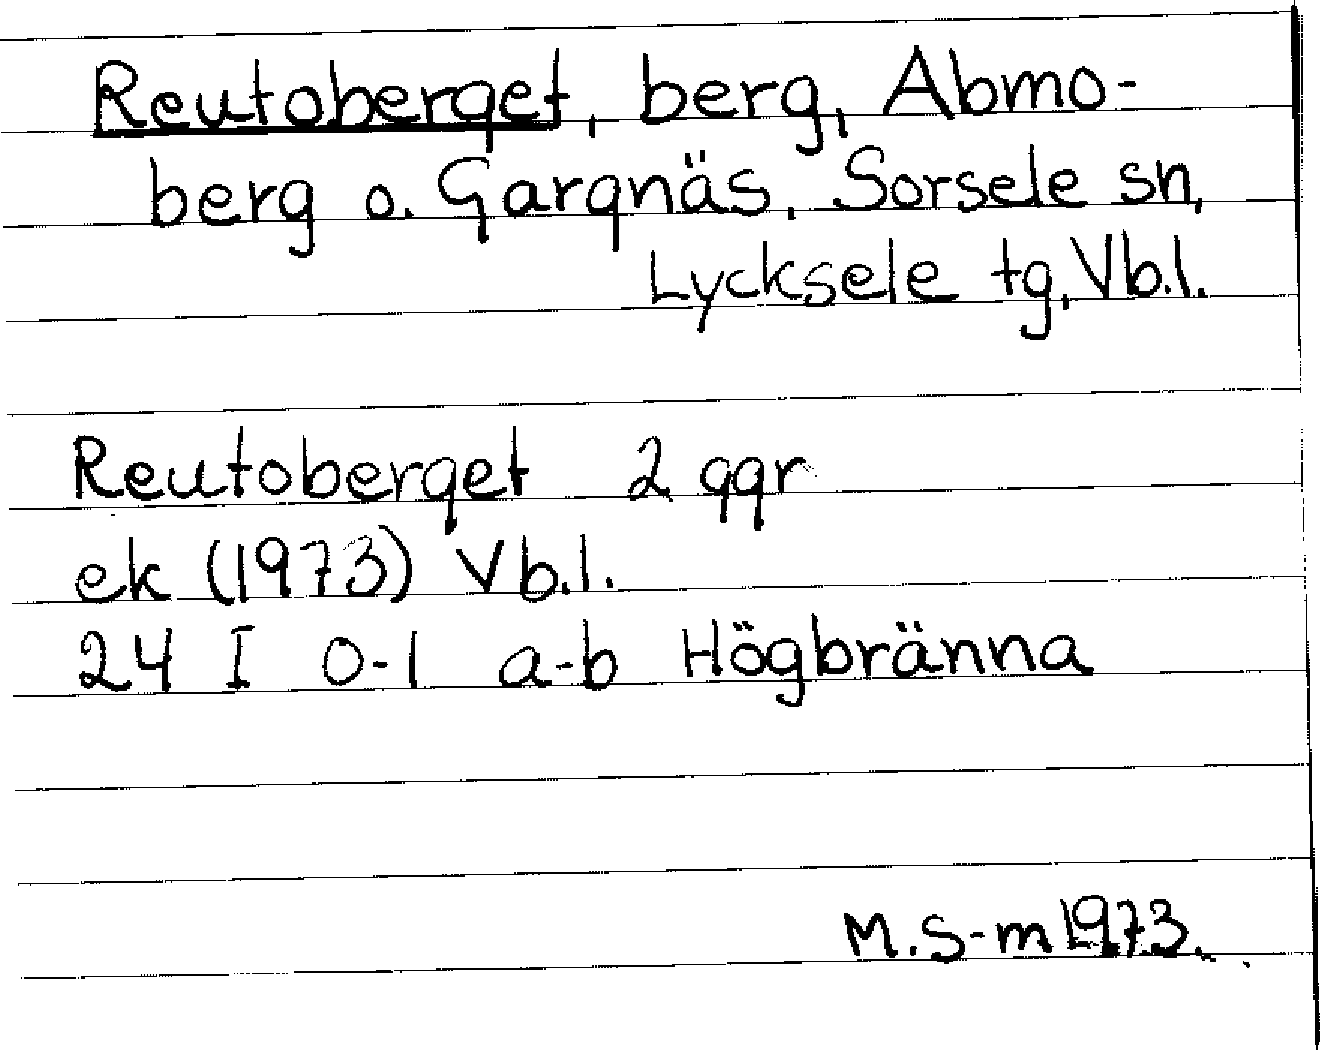 Reutoberget, berg, Abmo-
berg o. Gargnäs, Sorsele sn,
Lycksele tg, Vb.l.
Reutoberget 2 ggr
ek (1973) Vb.l.
24 I 0-1 a-b Högbränna
M.S-m 1973.